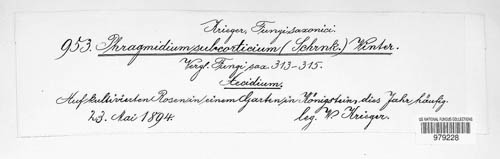 Krieger, Fungi saxonici.
953. Phragmidium subcorticium (Schrnk.) Winter.
Vergl. Fungi sax. 313-315.
Aecidium.
Auf kultivierten Rosen in einem Garten in Königstein, dies Jahr häufig.
23. Mai 1894. leg. W. Krieger.
US NATIONAL FUNGUS COLLECTIONS
979228